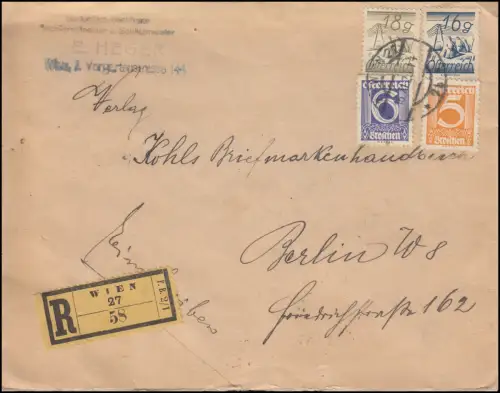 E. HEGER
Wien, I.
18g 16g
Österreich Österreich
Österreich Österreich
6 5
Groschen Groschen
Verlag
Kohls Briefmarkenhandbuch
Einschreiben
Berlin W8
Friedrichstraße 162
R WIEN
27
58